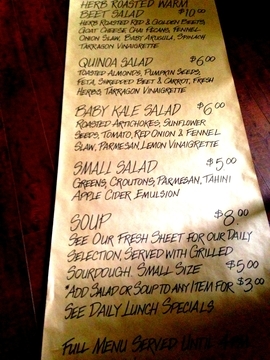 HERB ROASTED WARM
BEET SALAD $10.00
HERB ROASTED RED & GOLDEN BEETS,
GOAT CHEESE, CHAI PECANS, FENNEL
ONION SLAW, BABY ARUGULA, SPINACH
TARRAGON VINAIGRETTE
QUINOA SALAD $6.00
TOASTED ALMONDS, PUMPKIN SEEDS,
FETA, SHREDDED BEET & CARROT, FRESH
HERBS, TARRAGON VINAIGRETTE
BABY KALE SALAD $6.00
ROASTED ARTICHOKES, SUNFLOWER
SEEDS, TOMATO, RED ONION & FENNEL
SLAW, PARMESAN, LEMON VINAIGRETTE
SMALL SALAD $5.00
GREENS, CROUTONS, PARMESAN, TAHINI
APPLE CIDER EMULSION
SOUP $8.00
SEE OUR FRESH SHEET FOR OUR DAILY
SELECTION, SERVED WITH GRILLED
SOURDOUGH, SMALL SIZE $5.00
*ADD SALAD OR SOUP TO ANY ITEM FOR $3.00
SEE DAILY LUNCH SPECIALS
FULL MENU SERVED UNTIL